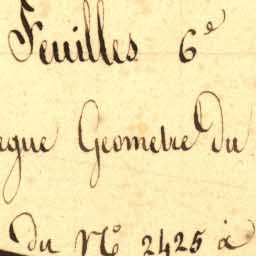 Feuilles 6e
egue Geometre du
du No 2425 à